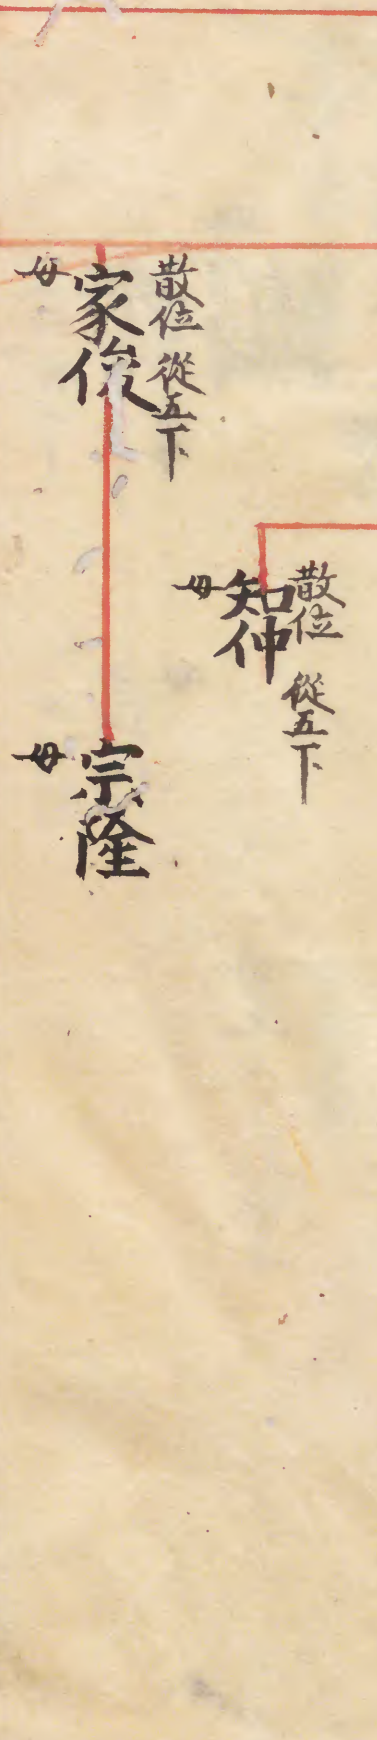 散位 從五下
知仲
母
散位 從五下
家俊
母
宗隆
母